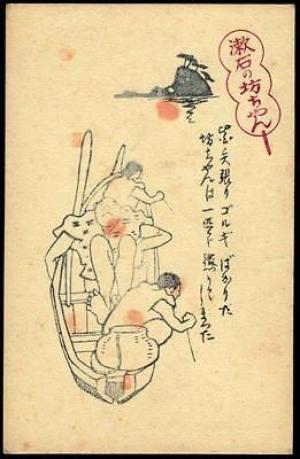 漱石の坊ちゃん
矢張りゴルキばかりだ
坊ちゃんは一匹で懲りてしまった